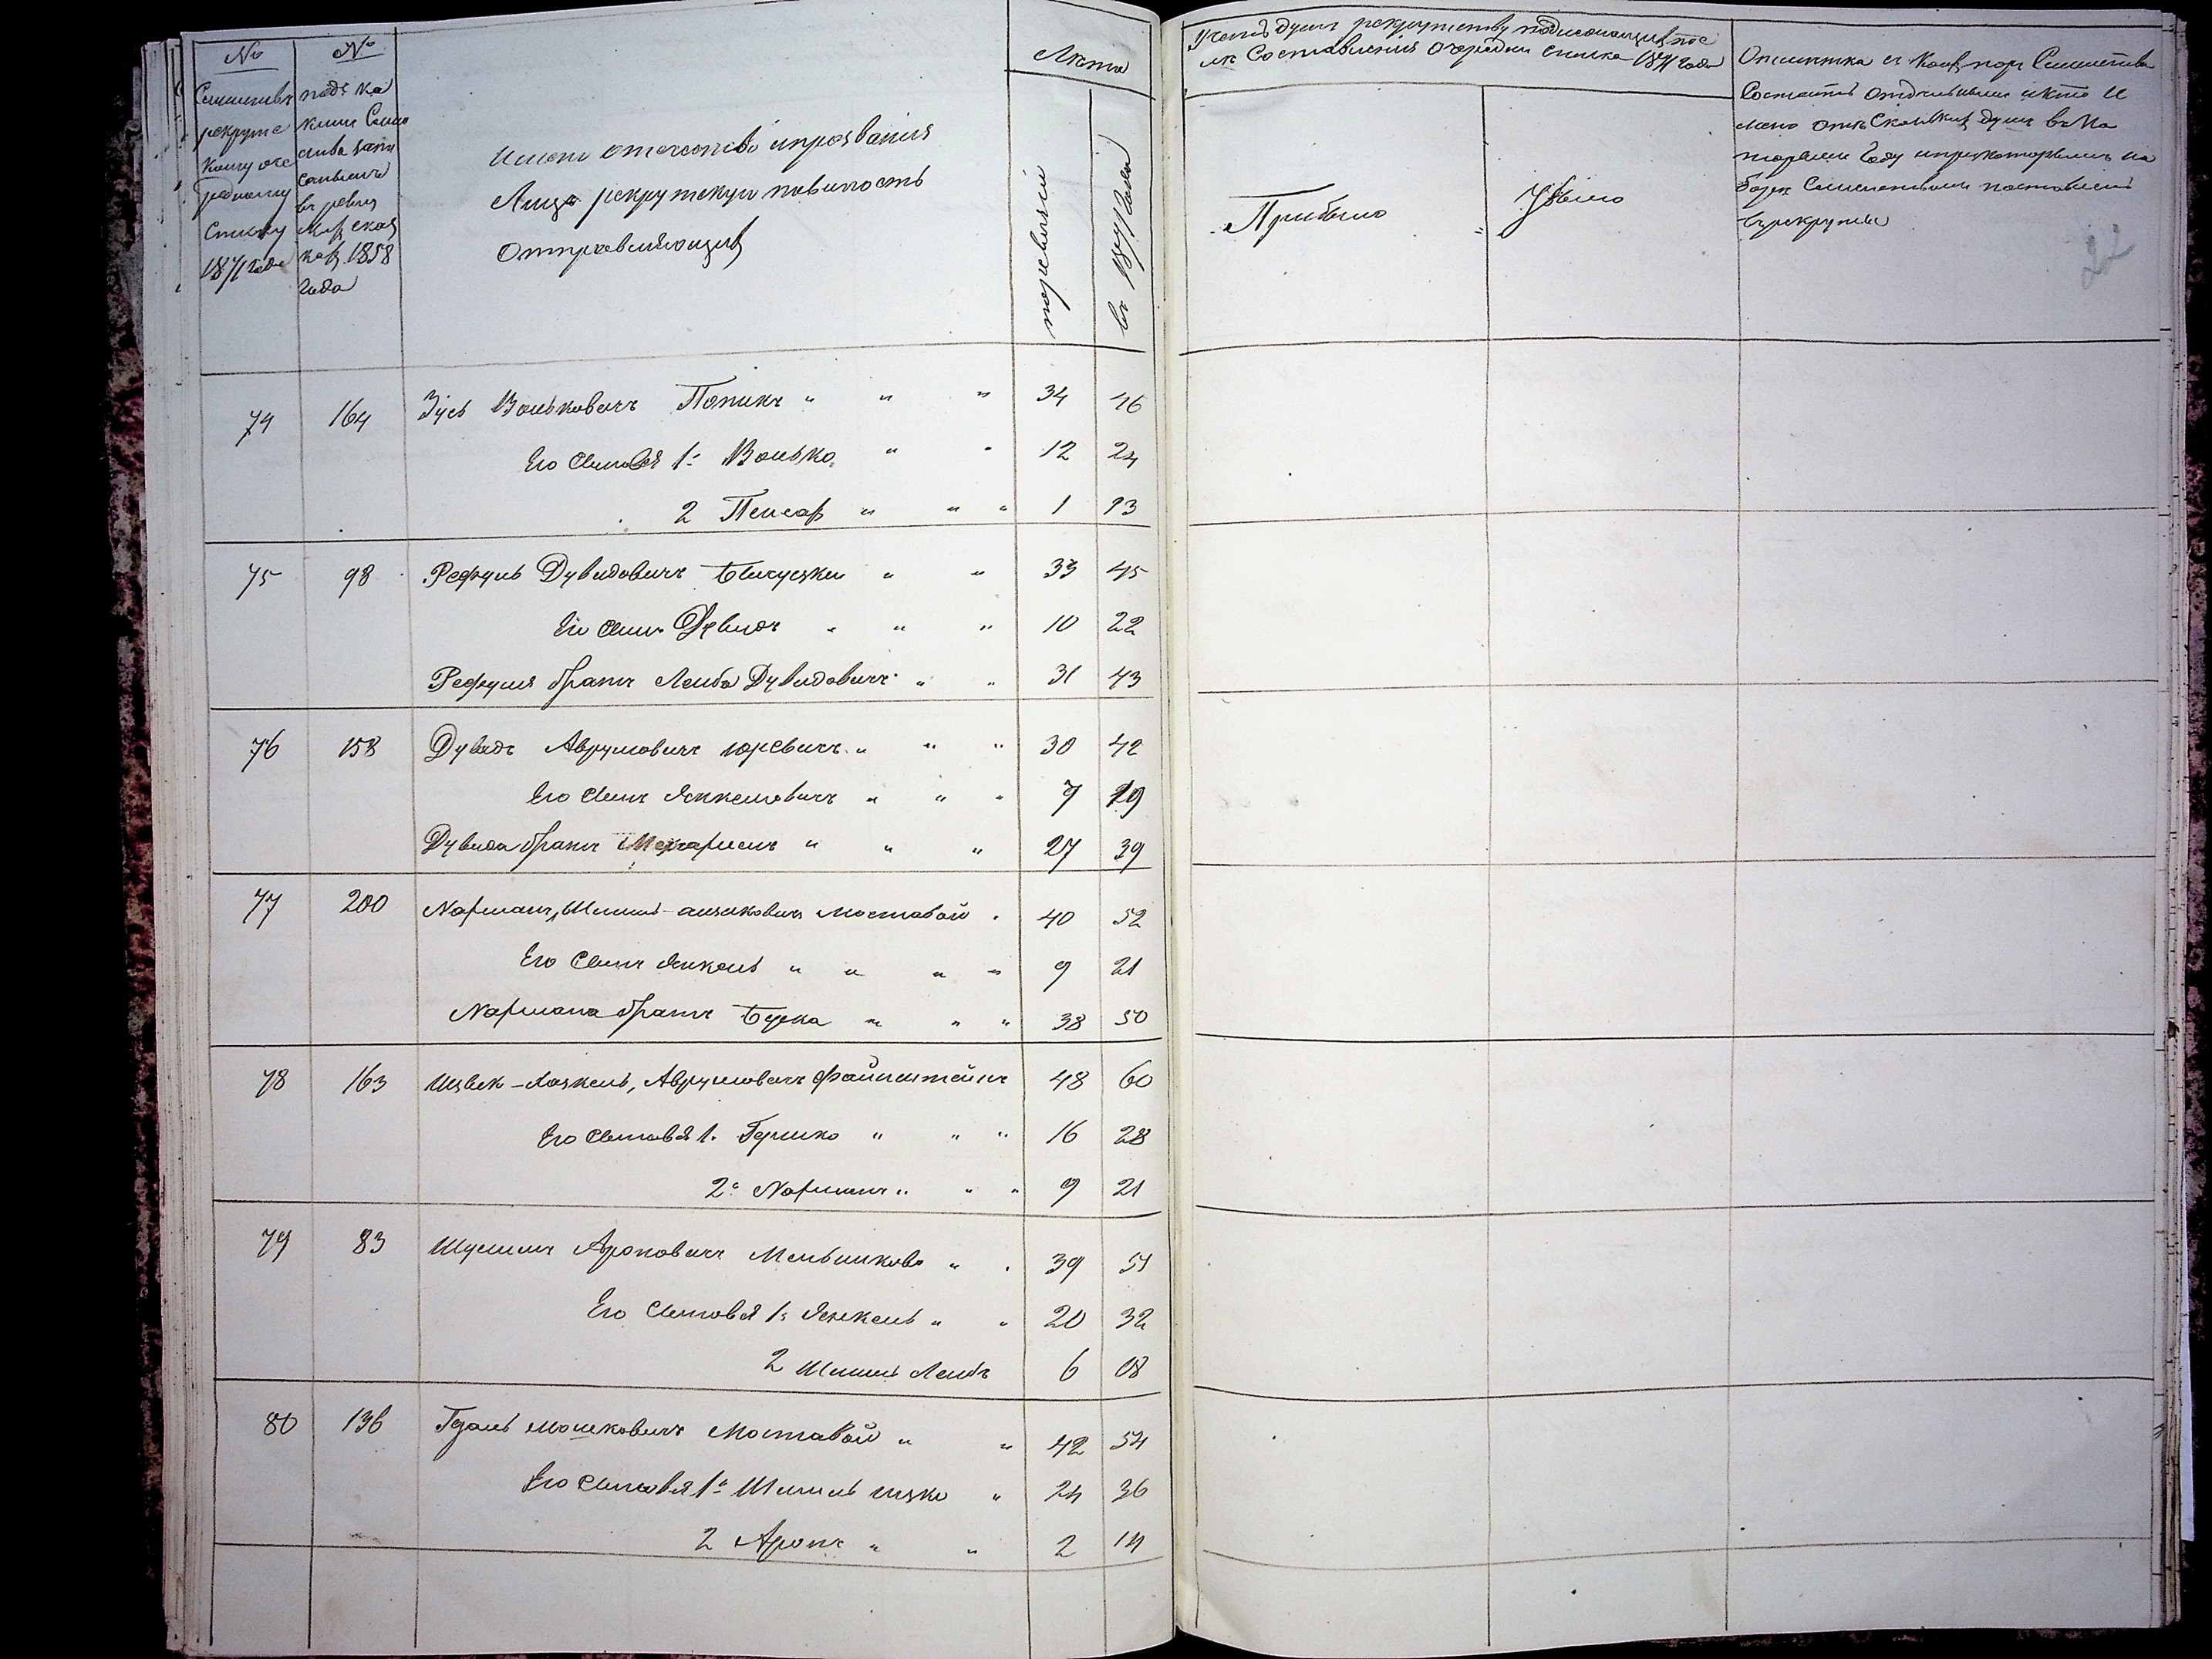 №
Семействъ
рекрутс
кому оче
редному
списку
1871 года
№
подъ ка
кими Семе
ства запи
саны
въ ревиз
ской
1858
года
Имена отечества и прозвания
Лица рекрутскую повинность
Отправляющихъ
Лета
по ревизии
въ 1871 году
Учетъ душъ рекрутству подлежащихъ пос
ле Составления очередн списка 1871 года
Прибыло
Убыло
Отметка съ какихъ пор Семейства
Состоятъ отдельными и кто и
въ ка
торомъ году и при которомъ на
боре Семействомъ поставленъ
въ рекруты
22
74 164 Зусь Вольковичъ Попикъ " " " 34 46
Его Сыновья 1: Волько " " 12 24
2 Пейсах " " " 1 13
75 98 Рефуль Дувидовичъ " " 33 45
Его Сынъ Дувидъ " " " 10 22
Рефуля братъ Лейба Дувидовичъ " " 31 43
76 158 Дувидъ Аврумовичъ Юревичъ " " " 30 42
Его Сынъ Янкелевичъ " " " 7 19
Дувида братъ " " " 27 39
77 200 Нахманъ, Шмуль-Айзиковичъ Мостовой " 40 52
Его Сынъ Янкель " " " " 9 21
Нахмана братъ " " " 38 50
78 163 Ицек-Хаскель, Аврумовичъ Файнштейнъ 48 60
Его Сыновья 1. Гершко " " " 16 28
2: Нахманъ " " " 9 21
79 83 Шулимъ Ароновичъ Мельников " " 39 51
Его Сыновья 1: Янкель " " 20 32
2 Шмуль Лейбъ 6 18
80 136 Гдаль Мошковичъ Мостовой " " 42 54
Его Сыновья 1: Шмуль Ицко " 24 36
2 Аронъ " " 2 14